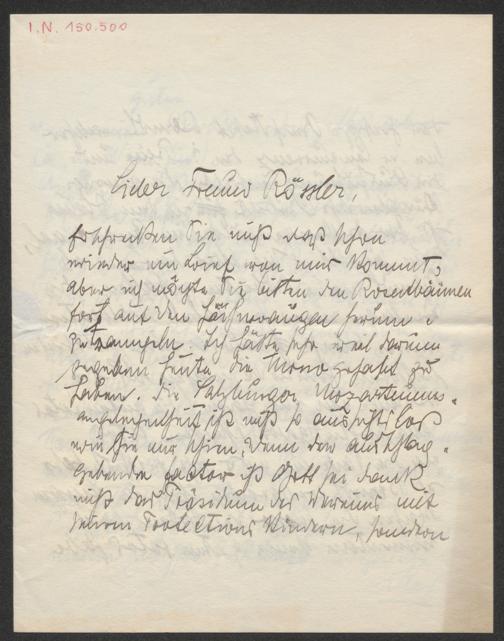 I.N. 150.500
Lieber Freund Rössler,
erschrecken Sie nicht daß schon
wieder ein Brief von mir kommt,
aber ich möchte Sie bitten den Rosenbäumen
fest auf den Hühneraugen herum
zutrampeln. Ich hätte sehr viel darum
gegeben heute die gehabt zu
haben. Die Salzburger Mozarteums-
angelegenheit ist nicht so aussichtslos
wie Sie mir schien, denn der ausschlag-
gebende Factor ist Gott sei dank
nicht das Präsidium des Vereines mit
seinen Protections Kindern, sondern